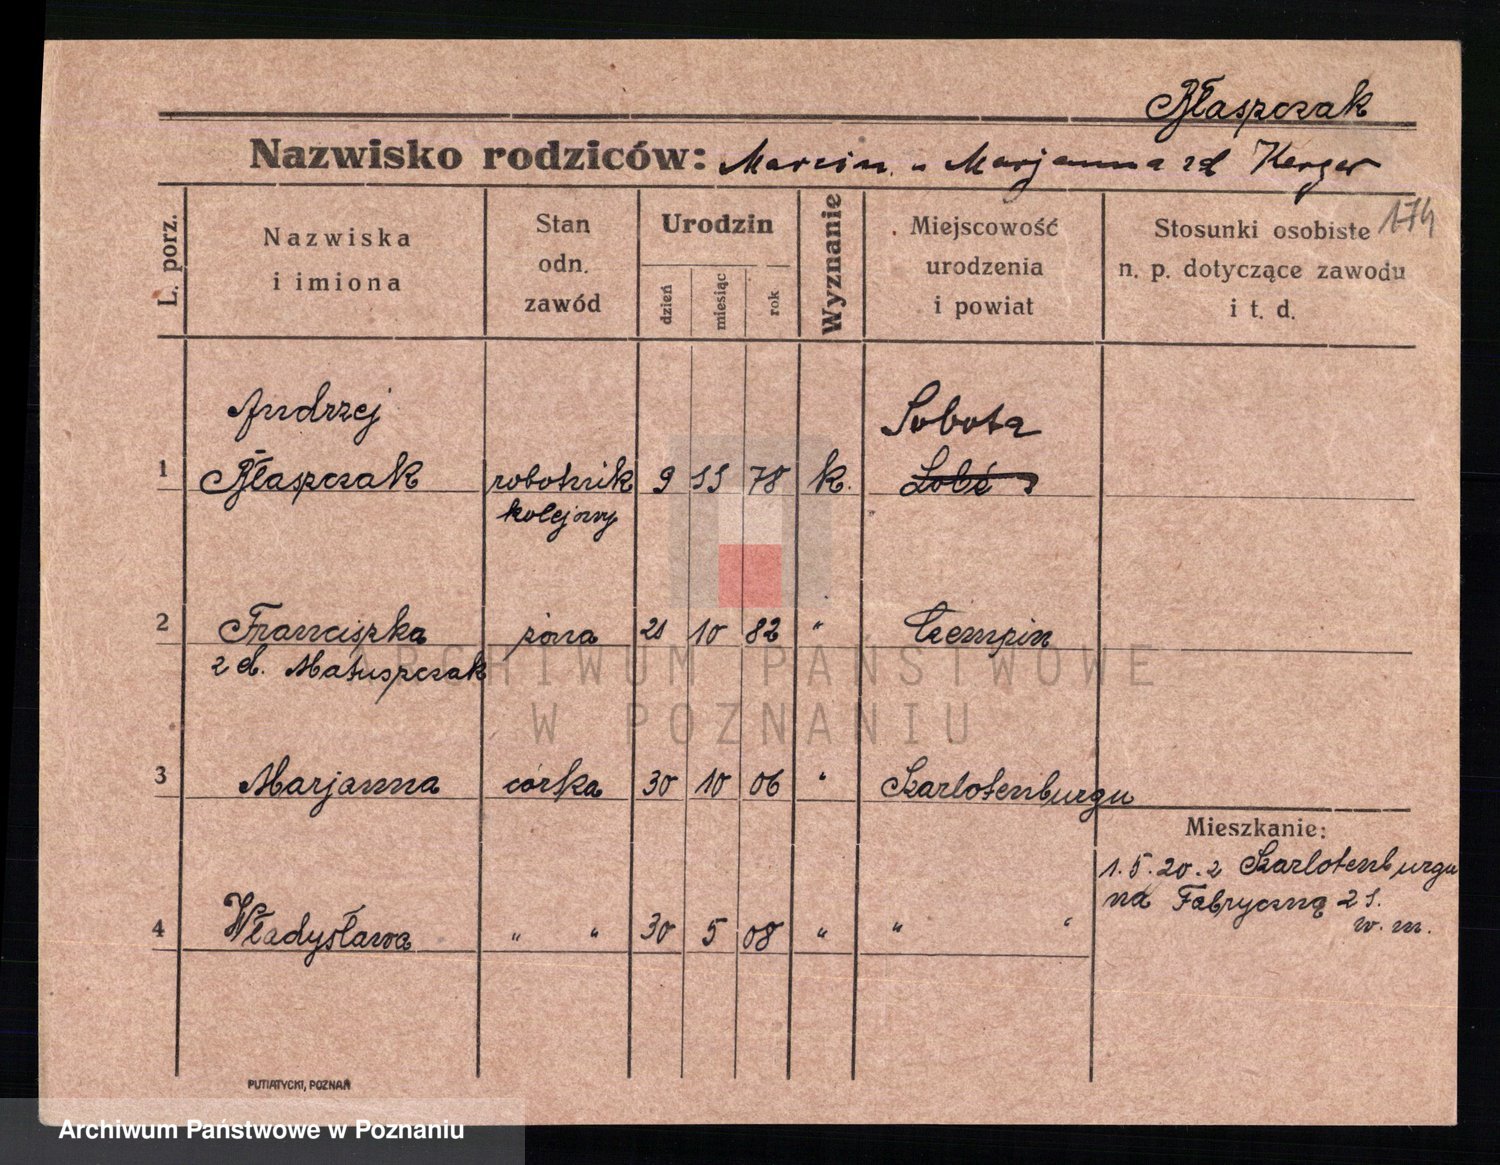 Błaszczak
Nazwisko rodziców: Marcin u Marjanna zd Kerger
174
L. porz.
Nazwiska
i imiona
Stan
odn.
zawód
Urodzin
dzień
miesiąc
rok
Wyznanie
Miejscowość
urodzenia
i powiat
Stosunki osobiste
n. p. dotyczące zawodu
i t. d.
Andrzej Sobota
1 Błaszczak robotnik 9 11 78 k.
kolejowy
2 Franciszka żona 21 10 82 " Czempin
z d. Matuszczak
3 Marjanna córka 30 10 06 " Szarlotenburgu
Mieszkanie:
1.5.20. z Szarlotenburgu
na Fabryczną 21.
w. m.
4 Władysława " " 30 5 08 " " "
PUTIATYCKI, POZNAŃ
ARCHIWUM PAŃSTWOWE
W POZNANIU
Archiwum Państwowe w Poznaniu